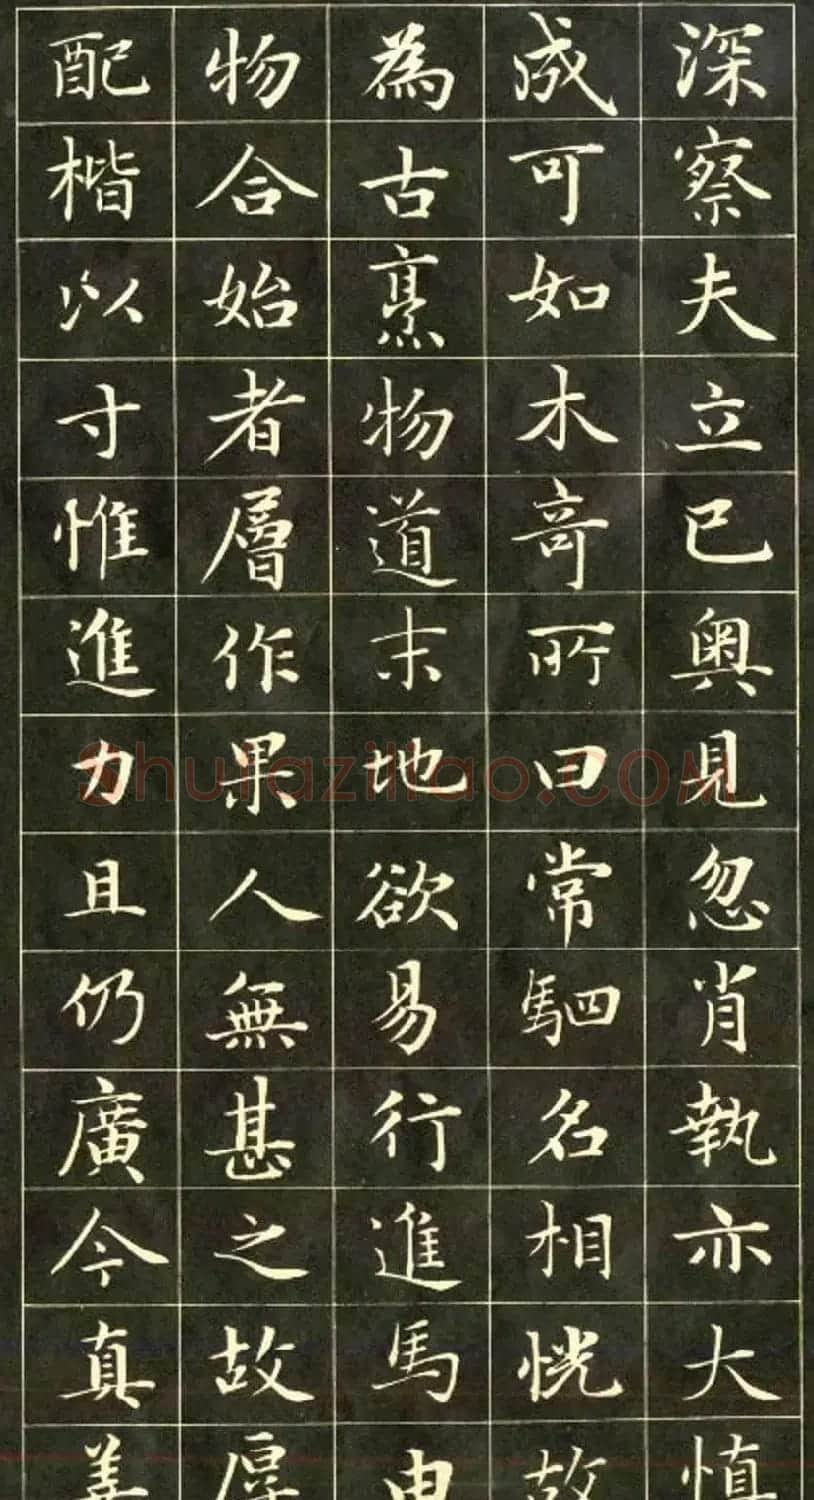 深察夫立已奥見忽肖執亦大慎
成可如木竒所曰常駟名相恍故
為古烹物道末地欲易行進馬
物合始者層作果人無甚之故厚
配楷以寸惟進力且仍廣今真善
Shufaziliao.COM